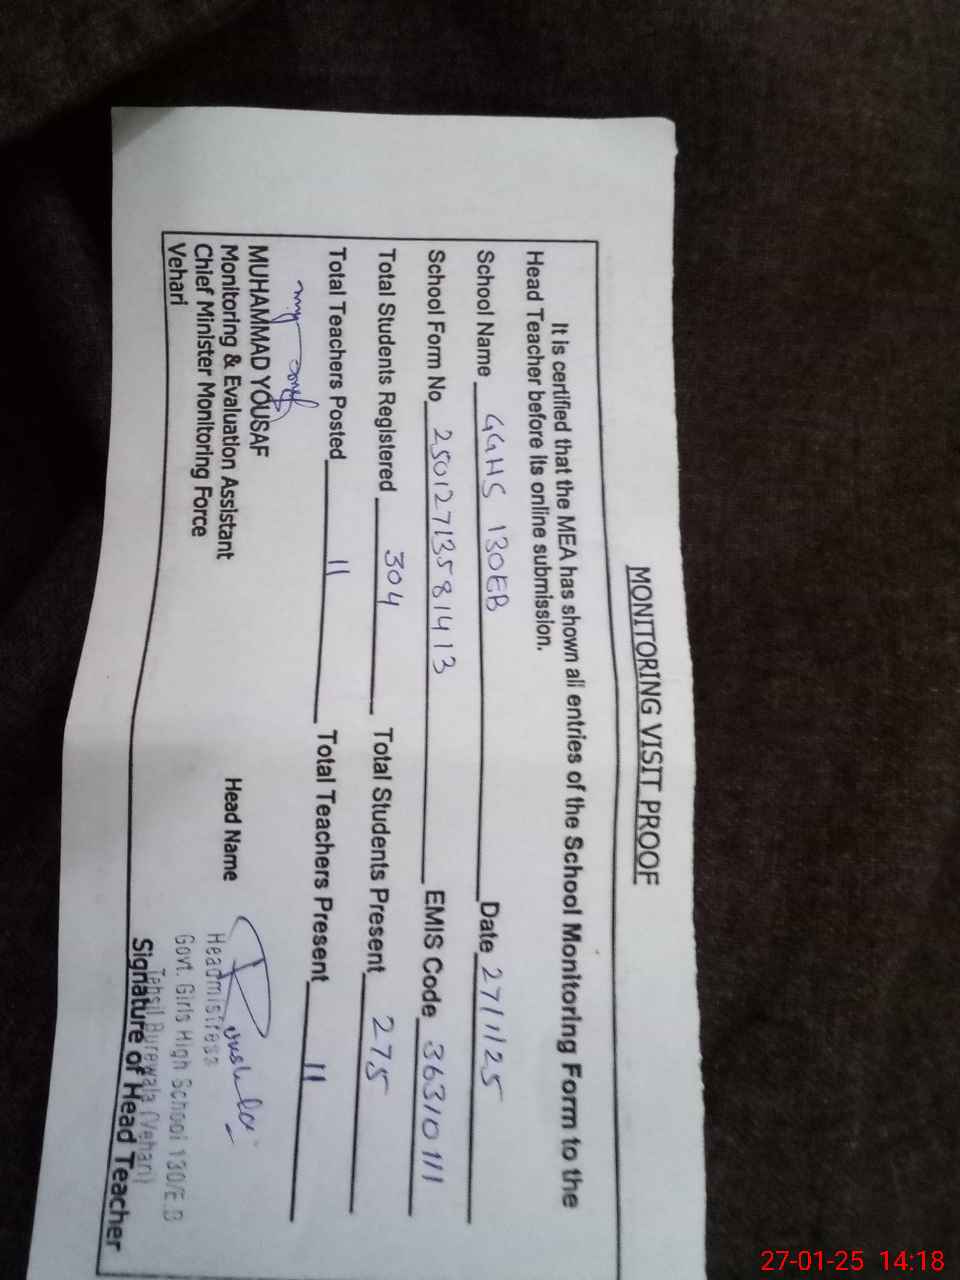 MONITORING VISIT PROOF
It is certified that the MEA has shown all entries of the School Monitoring Form to the
Head Teacher before its online submission.
School Name GGHS 130EB Date 27/1/25
School Form No 25012713581413 EMIS Code 36310111
Total Students Registered 304 Total Students Present 275
Total Teachers Posted 11 Total Teachers Present 11
MUHAMMAD YOUSAF
Monitoring & Evaluation Assistant
Chief Minister Monitoring Force
Vehari
Head Name
Headmistress
Govt. Girls High School 130/E.B
Tehsil Burewala (Vehari)
Signature of Head Teacher
27-01-25 14:18